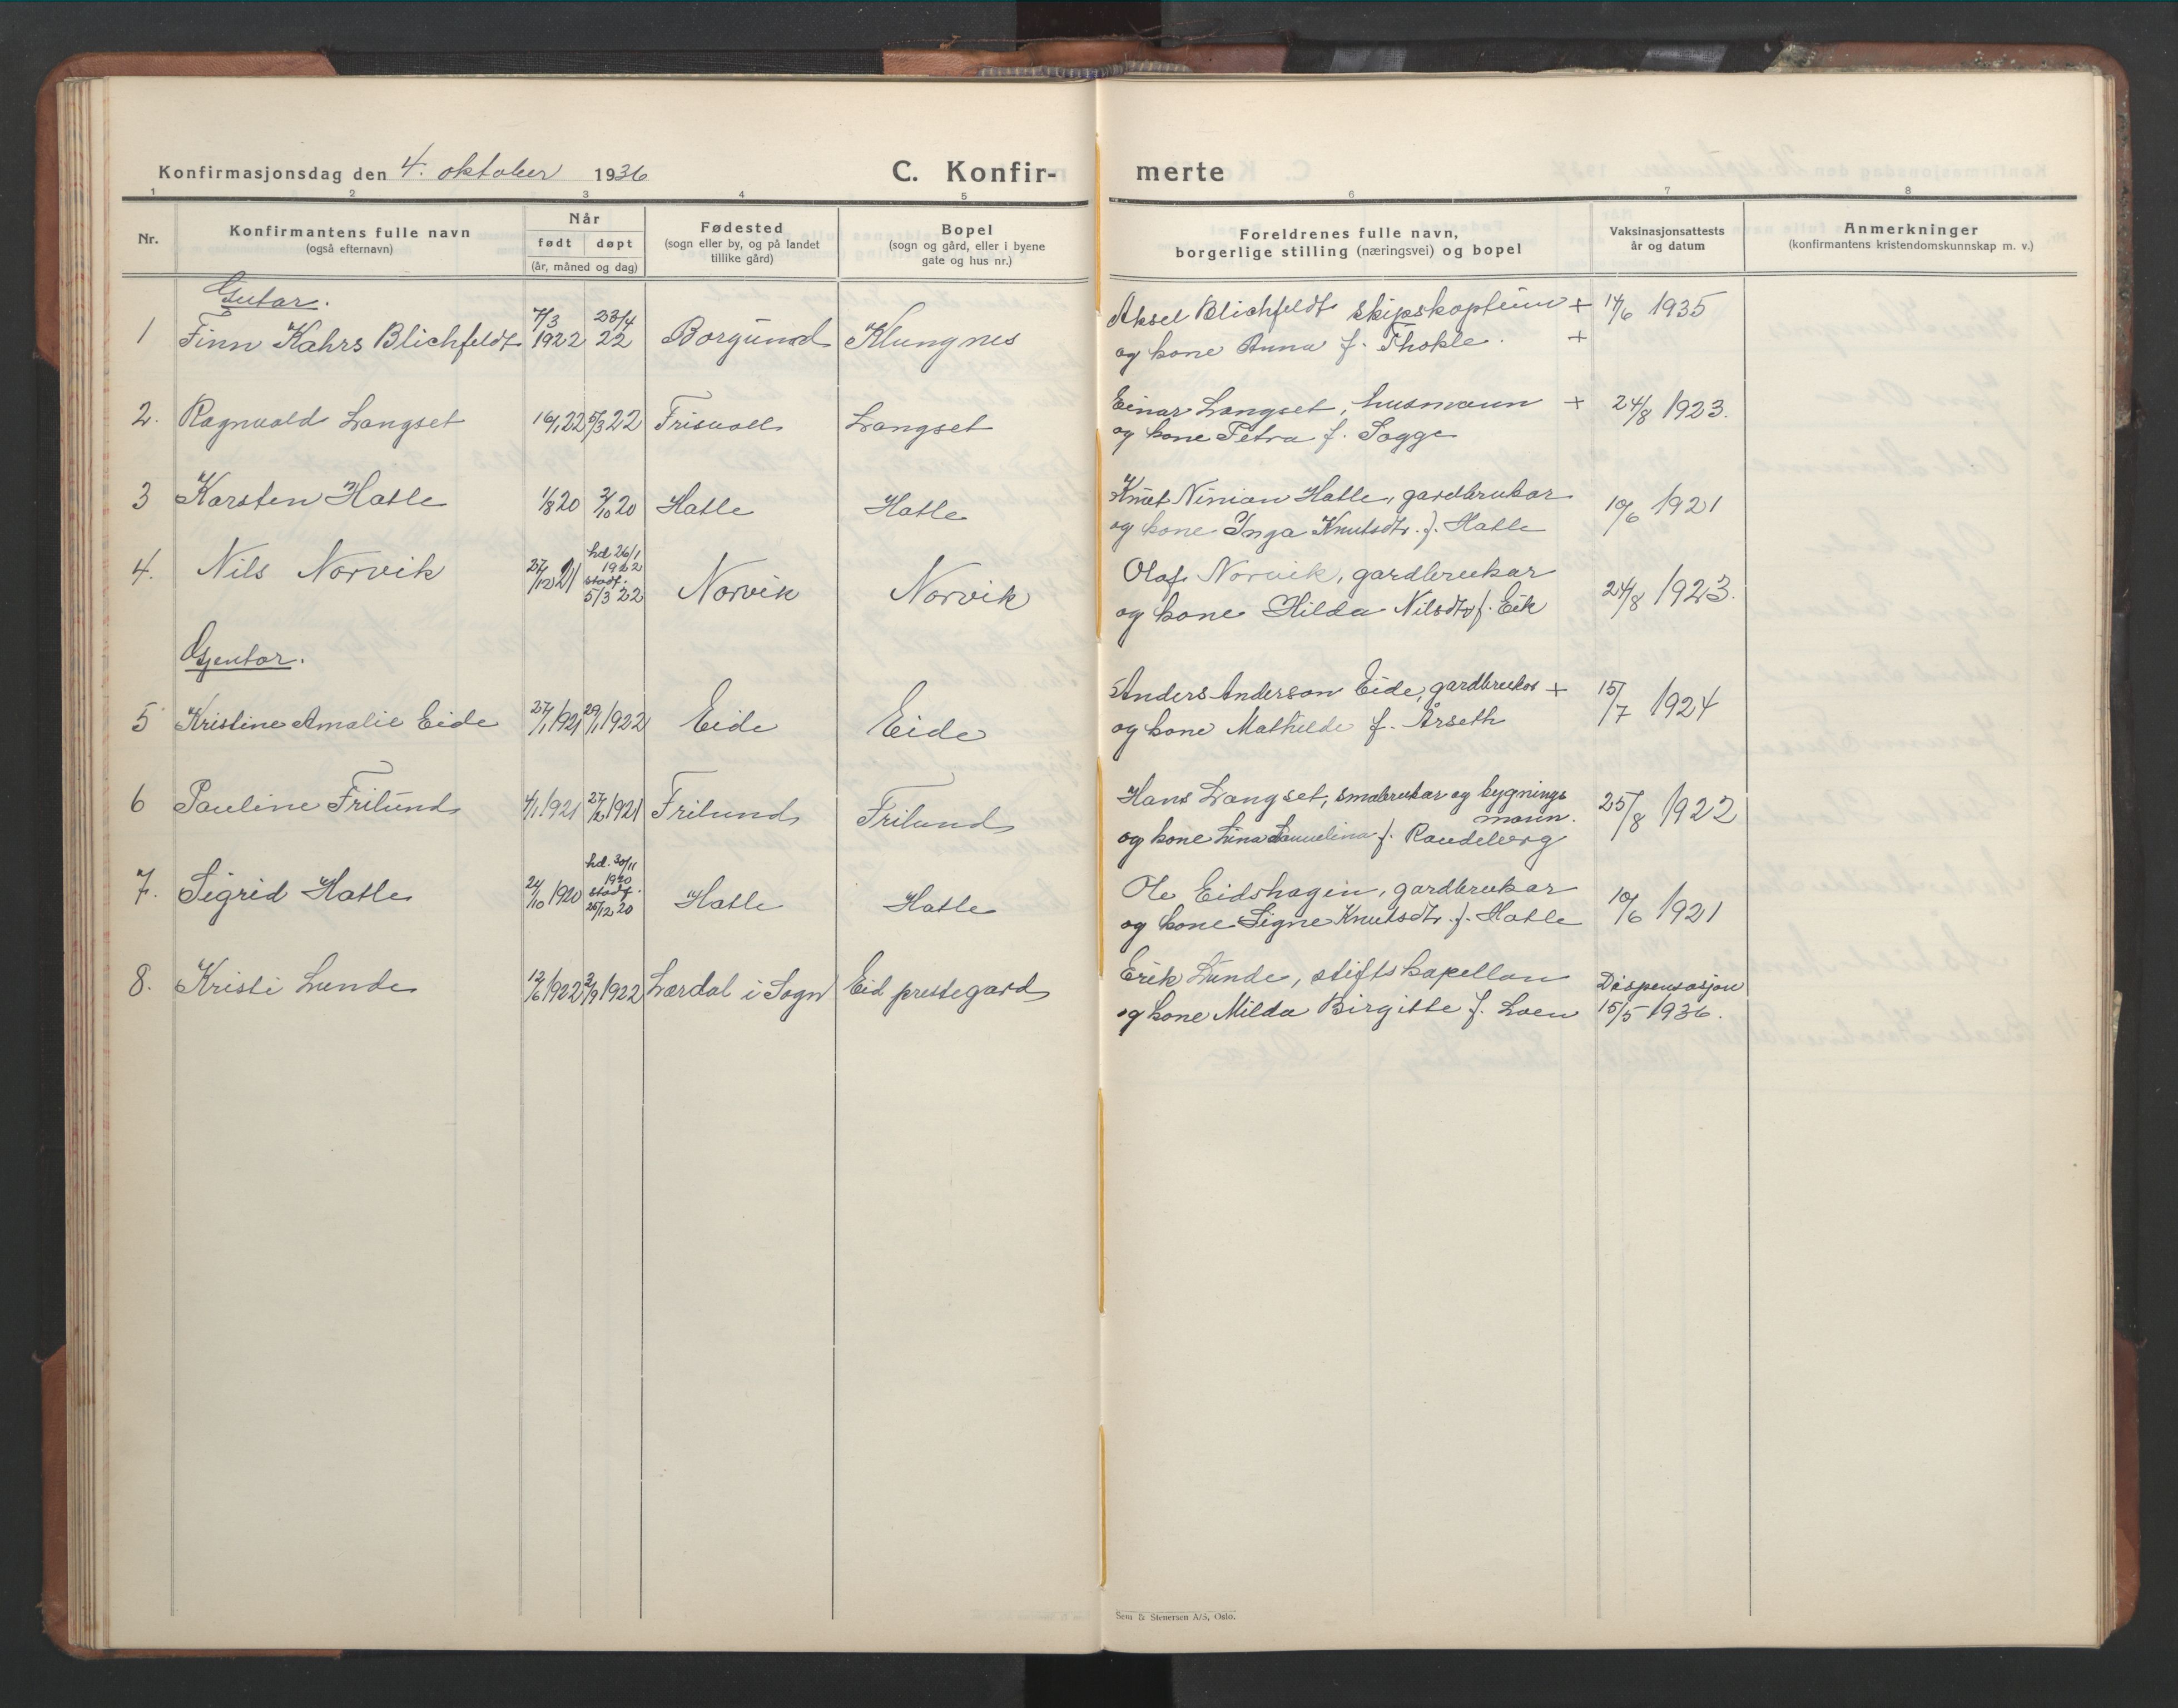 Konfirmasjonsdag den 4. oktober 1936
C. Konfirmerte
1 2 3 4 5 6 7 8
Nr.
Konfirmantens fulle navn
(også efternavn)
Når
født døpt
(år, måned og dag)
Fødested
(sogn eller by, og på landet
tillike gård)
Bopel
(sogn og gård, eller i byene
gate og hus nr.)
Foreldrenes fulle navn,
borgerlige stilling (næringsvei) og bopel
Vaksinasjonsattests
år og datum
Anmerkninger
(konfirmantens kristendomskunnskap m. v.)
Gutar.
1 Finn Kahrs Blichfeldt 7/3 1922 23/4 22 Borgund Klungnes
Aksel Blichfeldt skipskaptein + 14/6 1935
og kone Anna f. Thokle. +
2. Ragnvald Langset 16/1 22 5/3 22 Frisvoll Langset
Einar Langset, husmann + 24/8 1923.
og kone Petra f. Sogge
3 Karsten Hatle 1/8 20 3/10 20 Hatle Hatle
Knut Ninian Hatle, gardbrukar 10/6 1921
og kone Inga Knutsdtr. f. Hatle
4. Nils Norvik 27/12 21 hd 26/1 1922 stadf. 5/3 22 Norvik Norvik
Olaf Norvik, gardbrukar 24/8 1923.
og kone Hilda Nilsdtr f. Eik
Gjentor.
5 Kristine Amalie Eide 27/1 1921 29/1 1922 Eide Eide
Anders Anderson Eide, gardbrukar + 15/7 1924
og kone Mathilde f. Årseth
6 Pauline Frilund 4/1 1921 27/2 1921 Frilund Frilund
Hans Langset, småbrukar og bygnings
mann. 25/8 1922
og kone Lina f. Raudeberg
7. Sigrid Hatle 24/10 1920 hd. 30/11 1920 stadf. 26/12 20 Hatle Hatle
Ole Eidshagin, gardbrukar 10/6 1921
og kone Signe Knutsdtr. f. Hatle
8. Kristi Lunde 12/6 1922 3/9 1922 Lærdal i Sogn Eid prestegard
Erik Lunde, stiftskapellan Dispensasjon
og kone Milda Birgitte f. Loen 15/5 1936.
Sem & Stenersen A/S, Oslo.